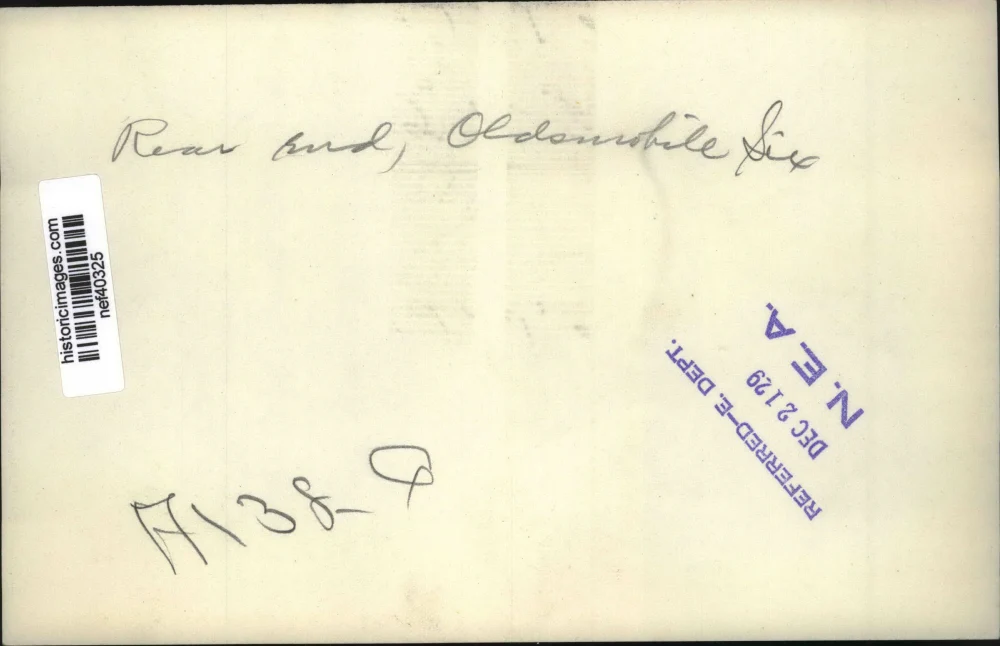 Rear end, Oldsmobile Six
historicimages.com
nef40325
N. E. A.
DEC 21 29
REFERRED-E. DEPT.
A138-9